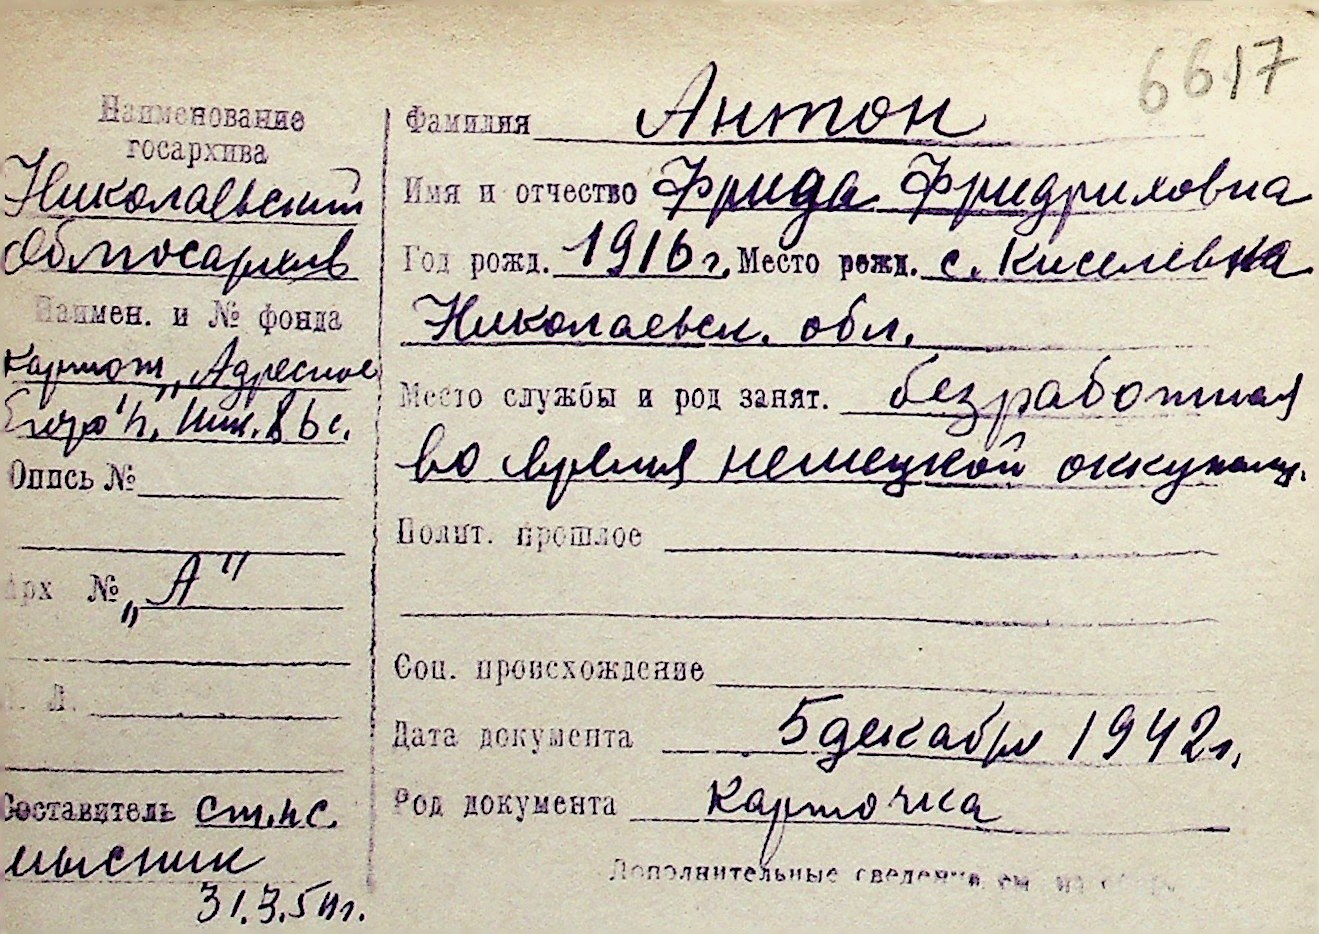 6617
Наименование
госархива
Николаевский
Облгосархив
Наимен. и № фонда
картот. „Адресное
Бюро"
Опись №
Арх №
„А"
Л.
Составитель ст. н. с.
31.3.5
Фамилия Антон
Имя и отчество Фрида Фридриховна
Год рожд. 1916 г. Место рожд. с. Киселевка
Николаевск. обл.
Место службы и род занят. безработная
во время немецкой оккупац.
Полит. прошлое
Соц. происхождение
Дата документа 5 декабря 1942 г.
Род документа карточка
Дополнительные сведения см. на обор.